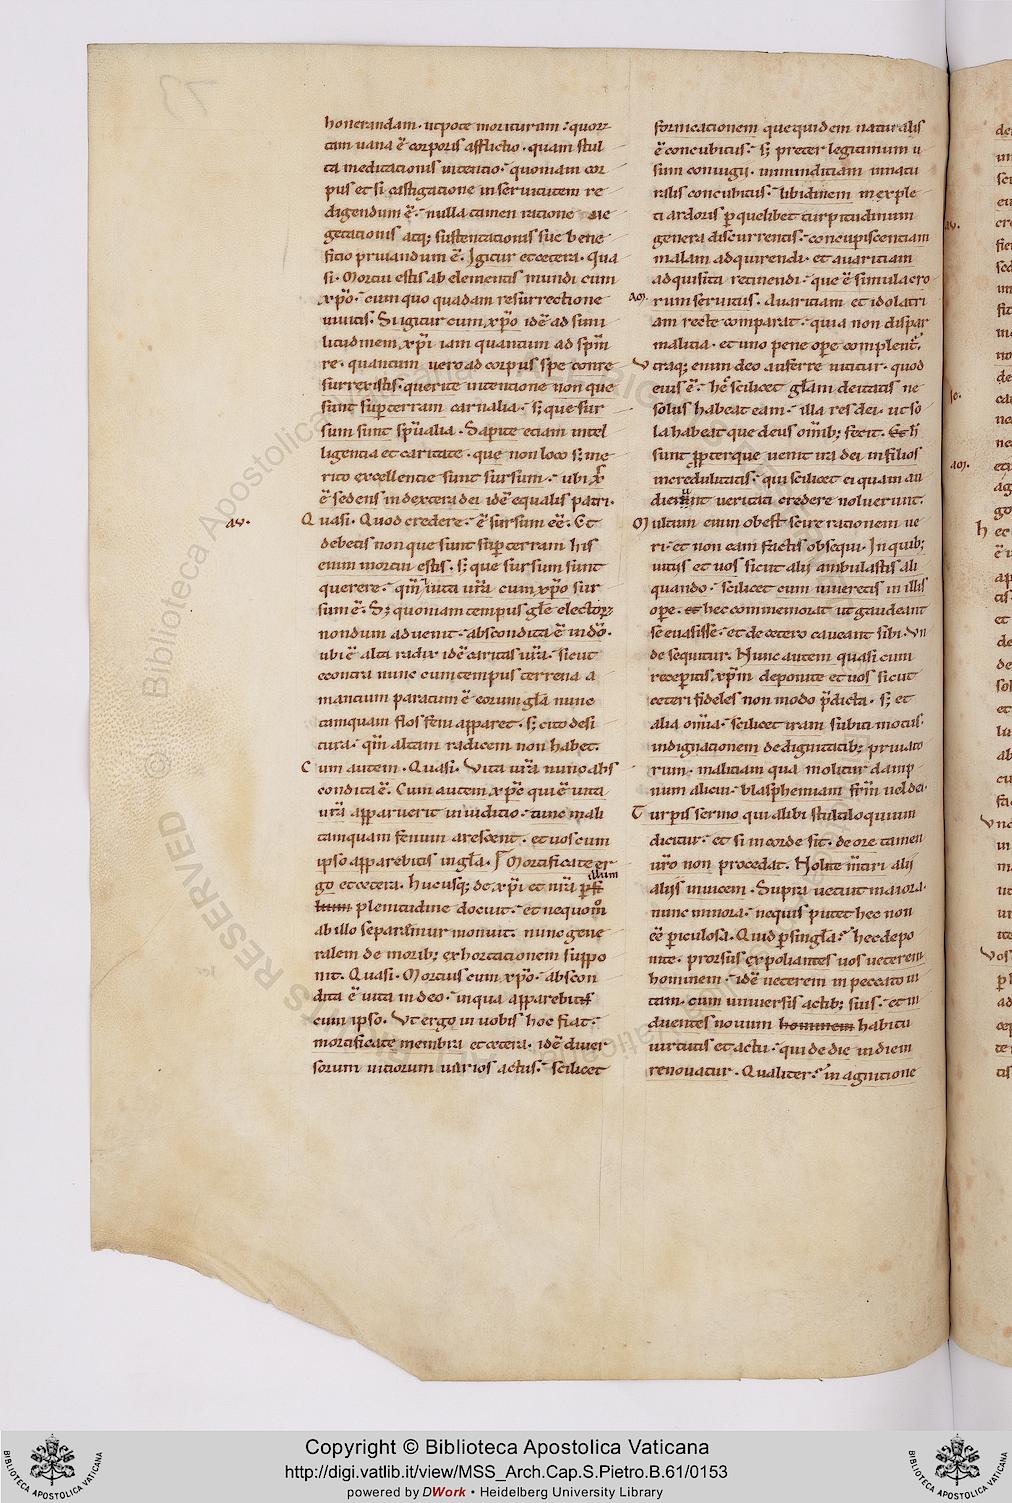 honerandam · utpote morituram : quor
tam uana ē corporis afflictio · quam stul
ta meditationis intentio · quoniam cor
pus et si castigatione in seruitutem re
digendum ē · nulla tamen ratione ue
getationis atq; sustentationis sue bene
ficio priuandum ē · Igitur et cetera · Qua
si · Mortui estis ab elementis mundi cum
xp̄o · cum quo quadam resurrectione
uiuitis · Si igitur cum xp̄o idē ad simi
litudinem xp̄i iam quantum ad sp̄m
re · quantum uero ad corpus spe conre
surrexistis · querite intentione non que
sunt sup terram carnalia · s; que sur
sum sunt sp̄ualia · Sapite etiam intel
ligentia et caritate · que non loco s; me
rito excellentie sunt sursum · ubi xp̄s
ē sedens in dextera dei idē equalis patri ·
aū · Quasi · Quod credere · ē sursum eē · Et
debetis non que sunt sup terram his
enim mortui estis · s; que sursum sunt
querere · qm̄ uita ur̄a cum xp̄o sur
sum ē · S; quoniam tempus gl̄e electoꝝ
nondum aduenit · abscondita ē in dō ·
ubi ē alta radix idē caritas ur̄a · sicut
econtra nunc cum tempus terrena a
mantium paratum ē eorum gl̄a nunc
tamquam flos feni apparet · s; cito desi
tura · qm̄ altam radicem non habet ·
Cum autem · Quasi · Vita ur̄a nunc abs
condita ē · Cum autem xp̄c qui ē uita
ur̄a apparuerit in iuditio · tunc mali
tamquam fenum arescent · et uos cum
ipso apparebitis in gl̄a · Mortificate er
go et cetera · Hucusq; de xp̄i et ur̄a
plenitudine docuit · et nequomō
ab illo separarimur monuit · nunc gene
ralem de morib; exhortationem suppo
nit · Quasi · Mortuis cum xp̄o · abscon
dita ē uita in deo · in qua apparebitis
cum ipso · Vt ergo in uobis hoc fiat ·
mortificate membra et cetera · idē diuer
sorum uitiorum uarios actus · scilicet
fornicationem que quidem naturalis
ē concubitus · s; preter legitimum u
sum coniugij · inmunditiam innatu
ralis concubitus · libidinem inexple
ti ardoris p quelibet turpitudinum
genera discurrentis · concupiscentiam
malam adquirendi · et auaritiam
adquisita retinendi · que ē simulacro
rum seruitus · Auaritiam et idolatri
am recte comparat · quia non dispar
malitia · et uno pene ope complent ·
Vtraq; enim deo auferre nititur · quod
eius ē · hec scilicet gl̄am deitatis ne
solus habeat eam · illa res dei · ut so
la habeat que deus om̄ib; fecit ·
sunt ppter que uenit ira dei in filios
incredulitatis · qui scilicet ei quam au
dierunt ueritati credere noluerunt ·
Multum enim obest scire rationem ue
ri · et non eam factis obsequi · In quib;
uitijs et uos sicut alij ambulastis ali
quando · scilicet cum uiueretis in illis
ope · hec commemorat ut gaudeant
se euasisse · et de cetero caueant sibi · Vn
de sequitur · Nunc autem quasi cum
receperitis xp̄m deponite et uos sicut
ceteri fideles non modo p̄dicta · s; et
alia om̄ia · scilicet iram subiti motus ·
indignationem de dignitatib; priuato
rum · malitiam qua molitur damp
num alicui · blasphemiam fr̄m uel dei ·
Turpis sermo qui alibi stultiloquium
dicitur · et si in corde sit · de ore tamen
ur̄o non procedat · Nolite m̄tiri alij
alijs inuicem · Supra uetuit maiora ·
nunc minora · nequis putet hec non
eē piculosa · Quid p singl̄a · hec depo
nite · prorsus expoliantes uos ueterem
hominem · idē ueterem in peccato ui
tam · cum uniuersis actib; suis · et in
duentes nouum hominem habitu
uirtutis et actu · qui de die in diem
renouatur · Qualiter · in agnitione
Copyright © Biblioteca Apostolica Vaticana
http://digi.vatlib.it/view/MSS_Arch.Cap.S.Pietro.B.61/0153
powered by DWork • Heidelberg University Library